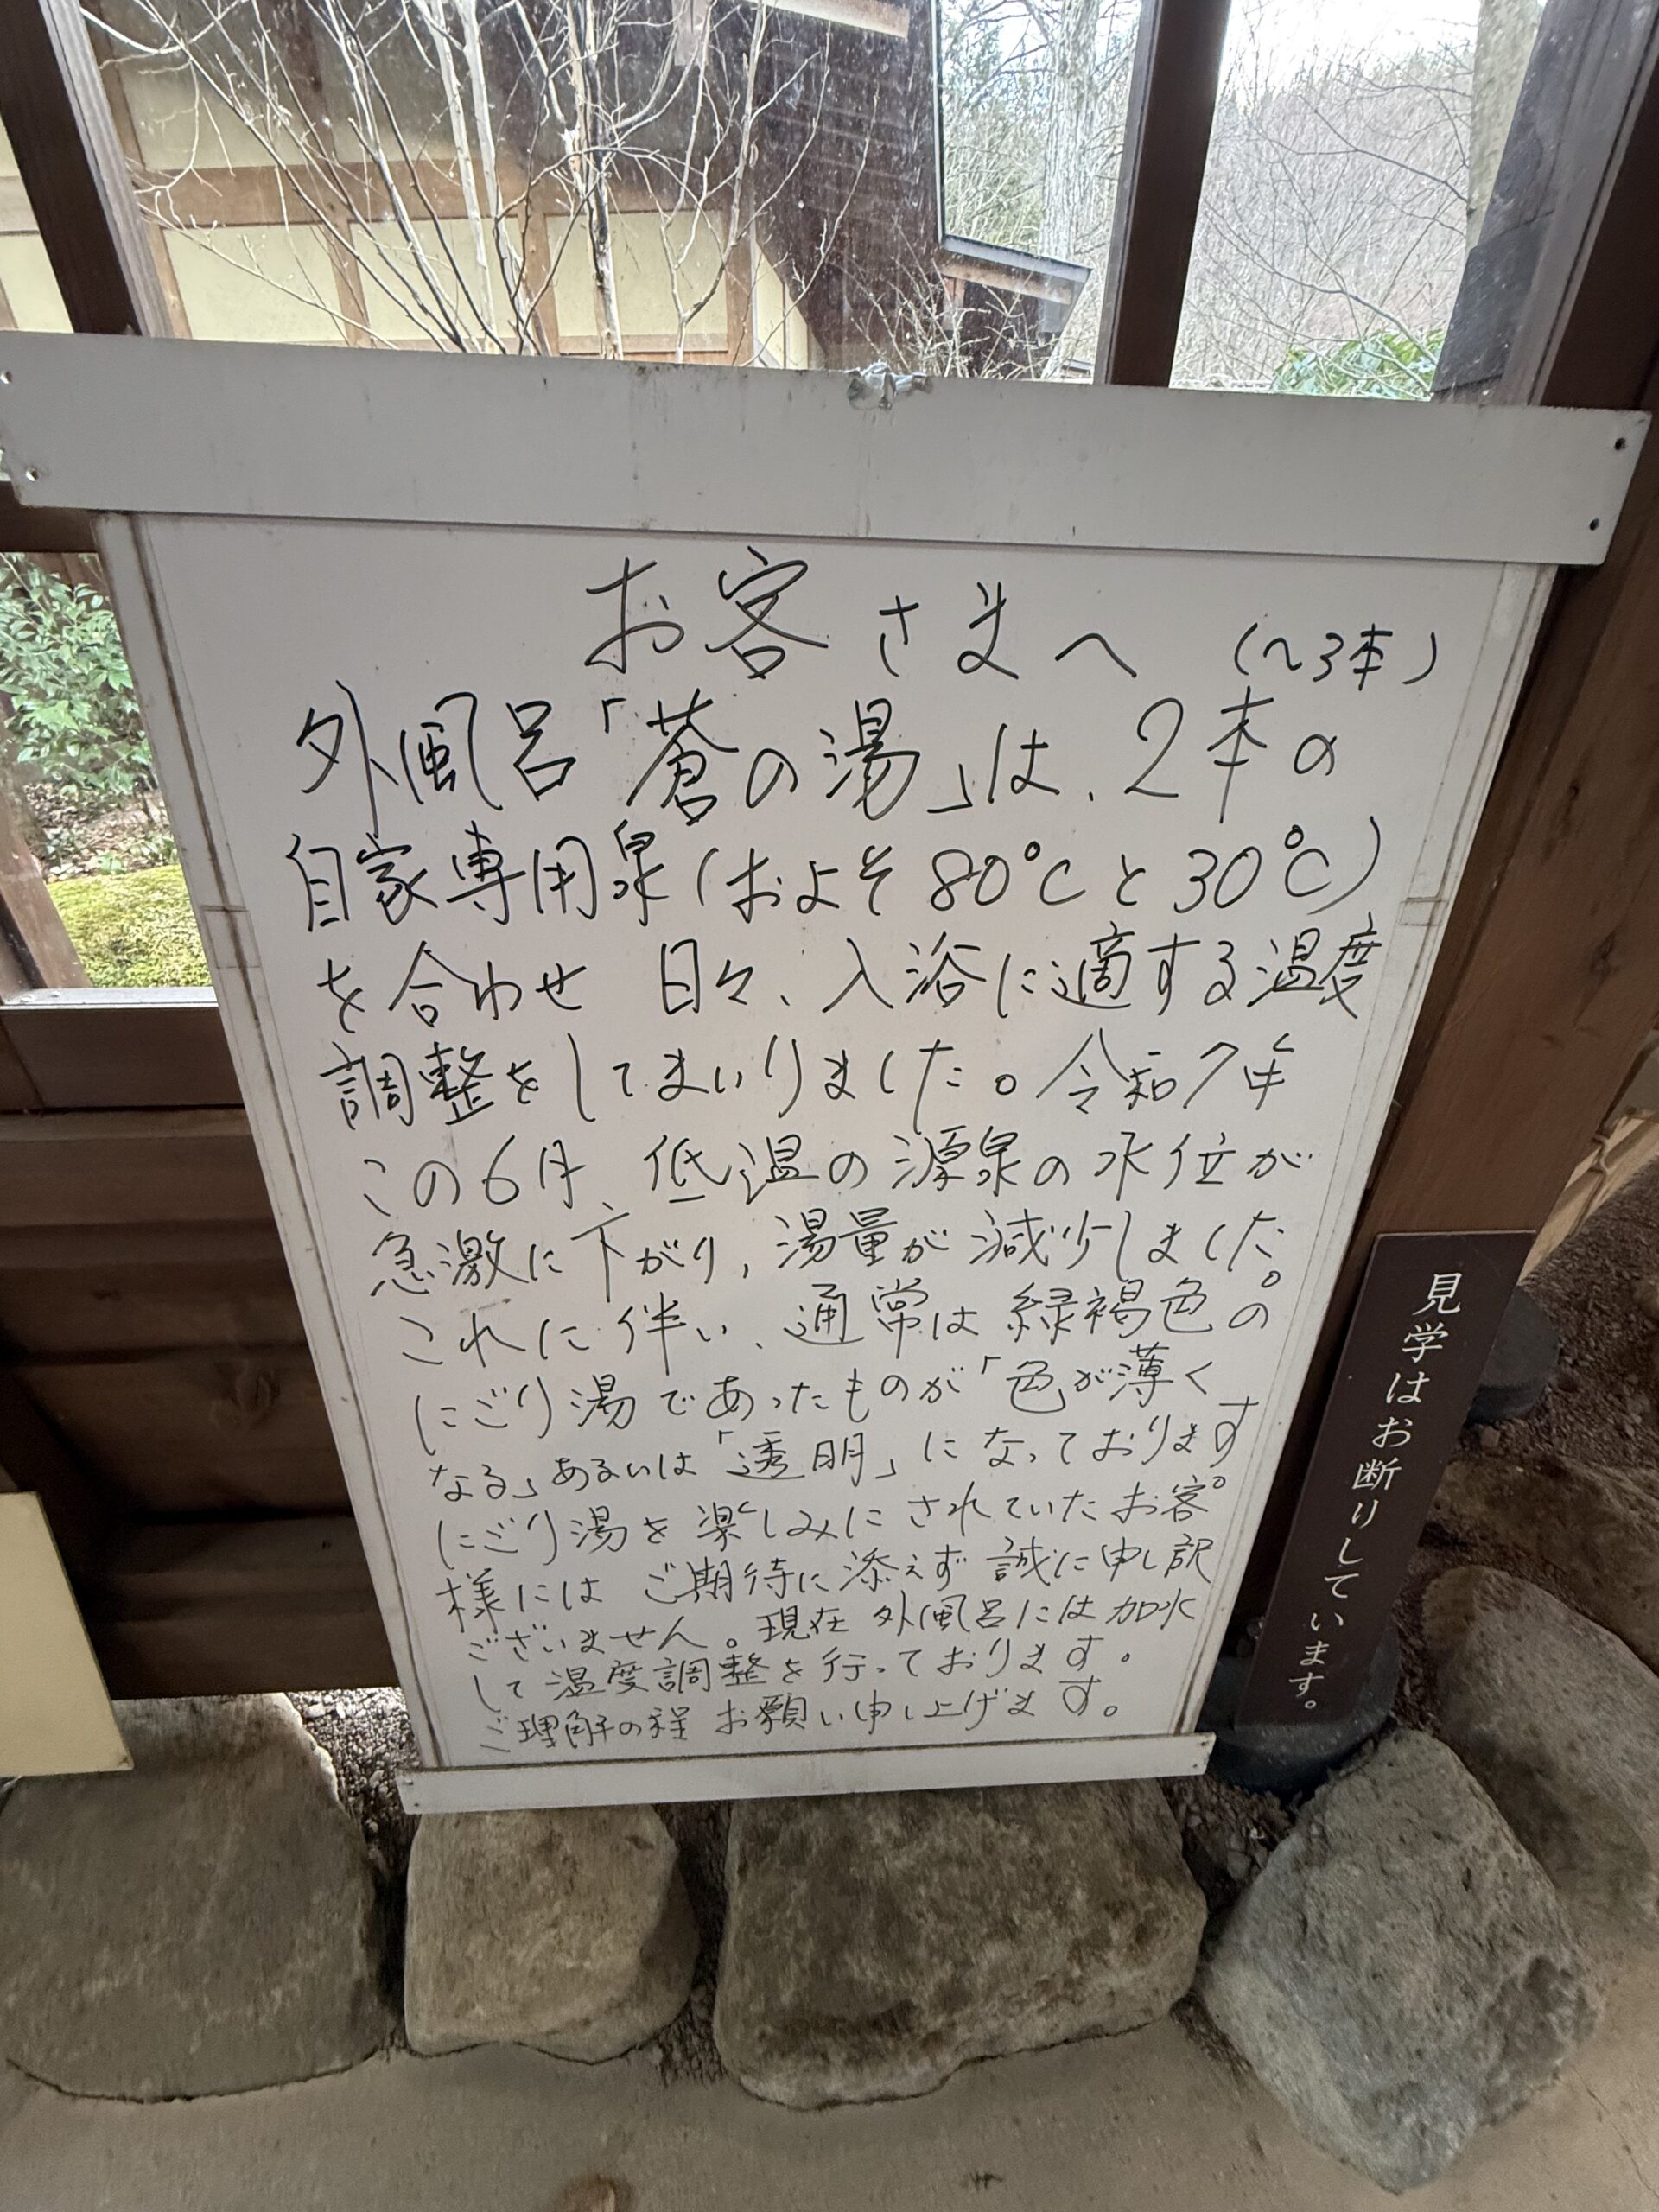 お客さまへ
(〜3本)
外風呂「蒼の湯」は、2本の
自家専用泉(およそ80℃と30℃)
を合わせ 日々、入浴に適する温度
調整をしてまいりました。令和7年
この6月、低温の源泉の水位が
急激に下がり、湯量が減少しました。
これに伴い、通常は緑褐色の
にごり湯であったものが「色が薄く
なる」あるいは「透明」になっております。
にごり湯を楽しみにされていたお客
様には ご期待に添えず 誠に申し訳
ございません。現在 外風呂には加水
して温度調整を行っております。
ご理解の程 お願い申し上げます。
見学はお断りしています。